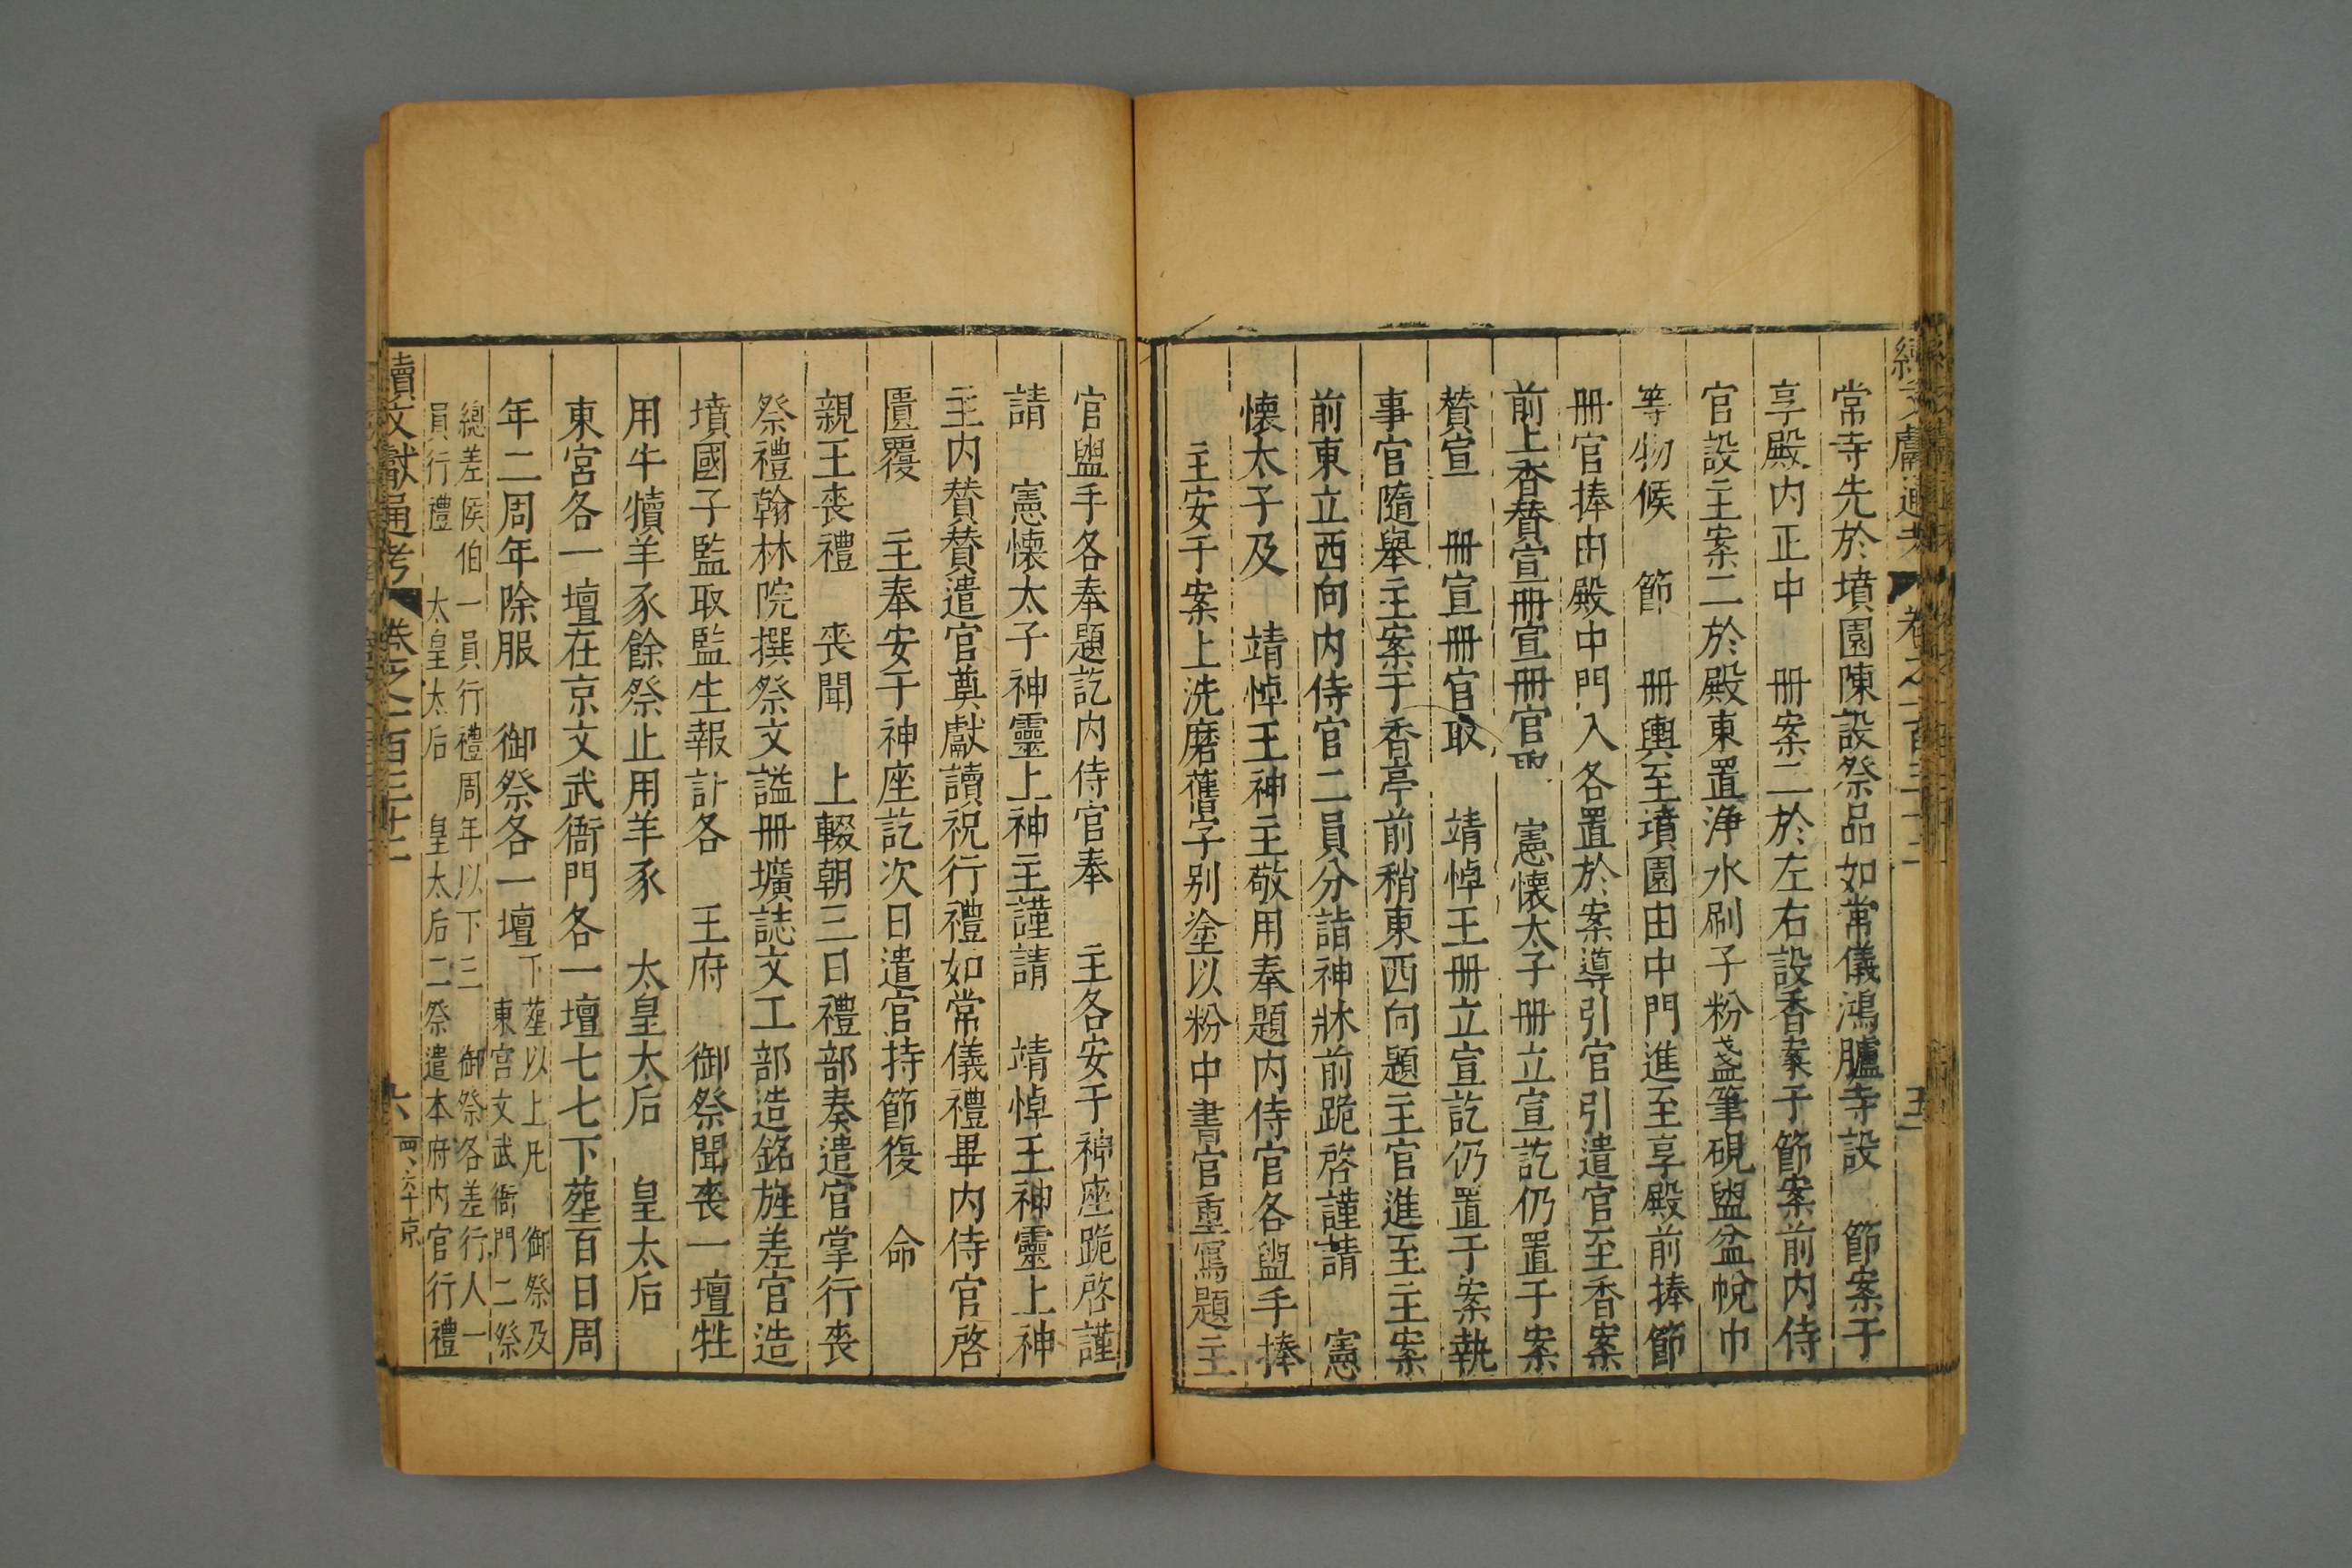 續文獻通考 卷之一百三十二 五
常寺先於墳園陳設祭品如常儀鴻臚寺設 節案于
享殿内正中 册案二於左右設香案于節案前内侍
官設主案二於殿東置淨水刷子粉盞筆硯盥盆帨巾
等物候 節 册輿至墳園由中門進至享殿前捧節
册官捧由殿中門入各置於案導引官引遣官至香案
前上香贊宣册宣册官取 憲懷太子册立宣訖仍置于案
贊宣 册宣册官取 靖悼王册立宣訖仍置于案執
事官隨舉主案于香亭前稍東西向題主官進至主案
前東立西向内侍官二員分詣神牀前跪啓謹請 憲
懷太子及 靖悼王神主敬用奉題内侍官各盥手捧
主安于案上洗磨舊字别塗以粉中書官重寫題主
官盥手各奉題訖内侍官奉 主各安于神座跪啓謹
請 憲懷太子神靈上神主謹請 靖悼王神靈上神
主内贊贊遣官奠獻讀祝行禮如常儀禮畢内侍官啓
匱覆 主奉安于神座訖次日遣官持節復 命
親王喪禮 喪聞 上輟朝三日禮部奏遣官掌行喪
祭禮翰林院撰祭文謚册壙誌文工部造銘旌差官造
墳國子監取監生報訃各 王府 御祭聞喪一壇牲
用牛犢羊豕餘祭止用羊豕 太皇太后 皇太后
東宮各一壇在京文武衙門各一壇七七下塟百日周
年二周年除服 御祭各一壇下塟以上凡 御祭及
東宮文武衙門二祭
總差侯伯一員行禮周年以下三 御祭各差行人一
員行禮 太皇太后 皇太后二祭遣本府内官行禮
續文獻通考 卷之一百三十二 六